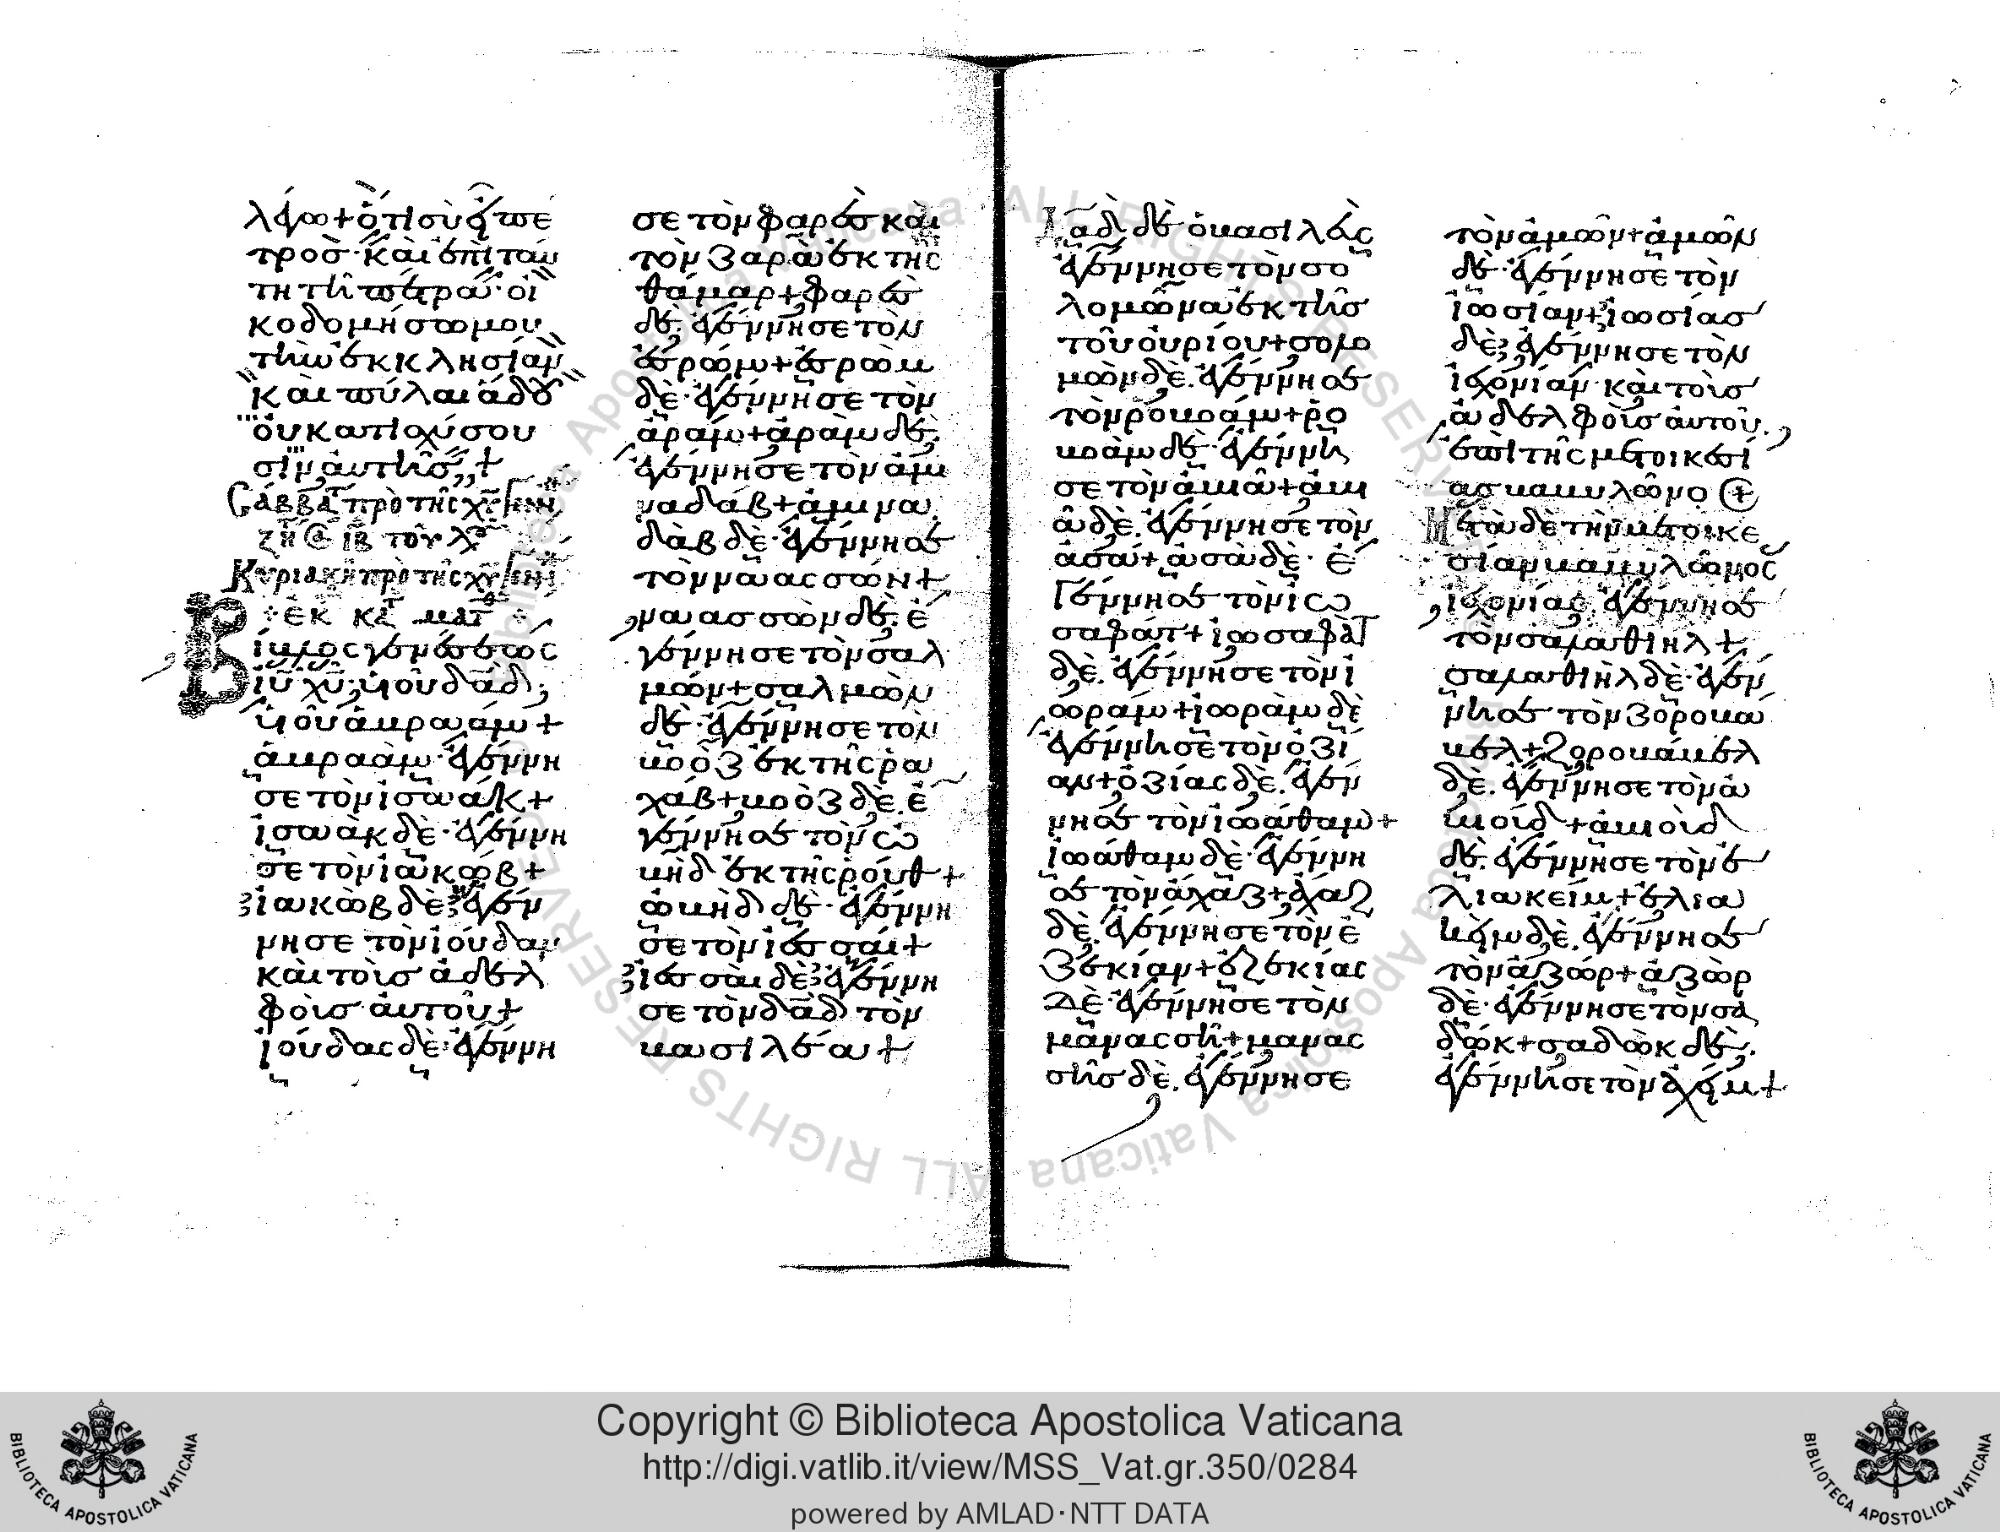 λέγω + ὅτι σὺ εἶ πέ
τρος· καὶ ἐπὶ ταύ
τη τῆ πέτρα· οἰ
κοδομήσω μου
τὴν ἐκκλησίαν
καὶ πύλαι ἅδου
οὐ κατισχύσου
σιν αὐτῆς +
Σαββάτ πρὸ τῆς χῦ γενν
ζη ιβ τοῦ λ
Κυριακῆ πρὸ τῆς χῦ γενν
ἐκ κατ ματθ
Βίβλος γενέσεως
ἰῦ χῦ· υἱοῦ δαδ·
υἱοῦ ἀβραάμ +
ἀβραὰμ· ἐγέννη
σε τὸν ἰσαάκ +
ἰσαὰκ δὲ· ἐγέννη
σε τὸν ἰακώβ +
ἰακὼβ δὲ ἐγέν
νησε τὸν ἰούδαν
καὶ τοὺς ἀδελ
φοὺς αὐτοῦ +
ἰούδας δὲ· ἐγέννη
σε τὸν φαρὲς καὶ
τὸν ζαρὰ ἐκ τῆς
θάμαρ + φαρὲς
δὲ· ἐγέννησε τὸν
ἐσρώμ + ἐσρὼμ
δὲ· ἐγέννησε τὸν
ἀράμ + ἀρὰμ δὲ·
ἐγέννησε τὸν ἀμι
ναδάβ + ἀμινα
δὰβ δὲ· ἐγέννησε
τὸν ναασσών +
ναασσὼν δὲ· ἐ
γέννησε τὸν σαλ
μών + σαλμὼν
δὲ· ἐγέννησε τὸν
βοὸζ ἐκ τῆς ρα
χάβ + βοὸζ δὲ· ἐ
γέννησε τὸν ὠ
βὴδ ἐκ τῆς ρούθ +
ὠβὴδ δὲ· ἐγέννη
σε τὸν ἰεσσαί +
ἰεσσαὶ δὲ ἐγέννη
σε τὸν δαδ τὸν
βασιλέα +
Δαδ δὲ ὁ βασιλεὺς
ἐγέννησε τὸν σο
λομῶνα ἐκ τῆς
τοῦ οὐρίου + σολο
μὼν δὲ· ἐγέννησε
τὸν ροβοάμ + ρο
βοὰμ δὲ· ἐγέννη
σε τὸν ἀβιά + ἀβι
ὰ δὲ· ἐγέννησε τὸν
ἀσά + ἀσὰ δὲ· ἐ
γέννησε τὸν ἰω
σαφάτ + ἰωσαφὰτ
δὲ· ἐγέννησε τὸν ἰ
ωράμ + ἰωρὰμ δὲ
ἐγέννησε τὸν ὀζί
αν + ὀζίας δὲ· ἐγέν
νησε τὸν ἰωάθαμ +
ἰωάθαμ δὲ· ἐγέννη
σε τὸν ἀχάζ + ἀχὰζ
δὲ· ἐγέννησε τὸν ἐ
ζεκίαν + ἐζεκίας
δὲ· ἐγέννησε τὸν
μανασσῆ + μανασ
σῆς δὲ· ἐγέννησε
τὸν ἀμών + ἀμὼν
δὲ· ἐγέννησε τὸν
ἰωσίαν + ἰωσίας
δὲ ἐγέννησε τὸν
ἰεχονίαν· καὶ τοὺς
ἀδελφοὺς αὐτοῦ·
ἐπὶ τῆς μετοικεσί
ας βαβυλῶνος
Μετὰ δὲ τὴν μετοικε
σίαν βαβυλῶνος
ἰεχονίας ἐγέννησε
τὸν σαλαθιήλ +
σαλαθιὴλ δὲ· ἐγέν
νησε τὸν ζοροβά
βελ + ζοροβάβελ
δὲ· ἐγέννησε τὸν ἀ
βιούδ + ἀβιοὺδ
δὲ· ἐγέννησε τὸν ἐ
λιακείμ + ἐλια
κεὶμ δὲ· ἐγέννησε
τὸν ἀζώρ + ἀζὼρ
δὲ· ἐγέννησε τὸν σα
δώκ + σαδὼκ δὲ·
ἐγέννησε τὸν ἀχείμ +
Copyright © Biblioteca Apostolica Vaticana
http://digi.vatlib.it/view/MSS_Vat.gr.350/0284
powered by AMLAD·NTT DATA
BIBLIOTECA APOSTOLICA VATICANA
BIBLIOTECA APOSTOLICA VATICANA